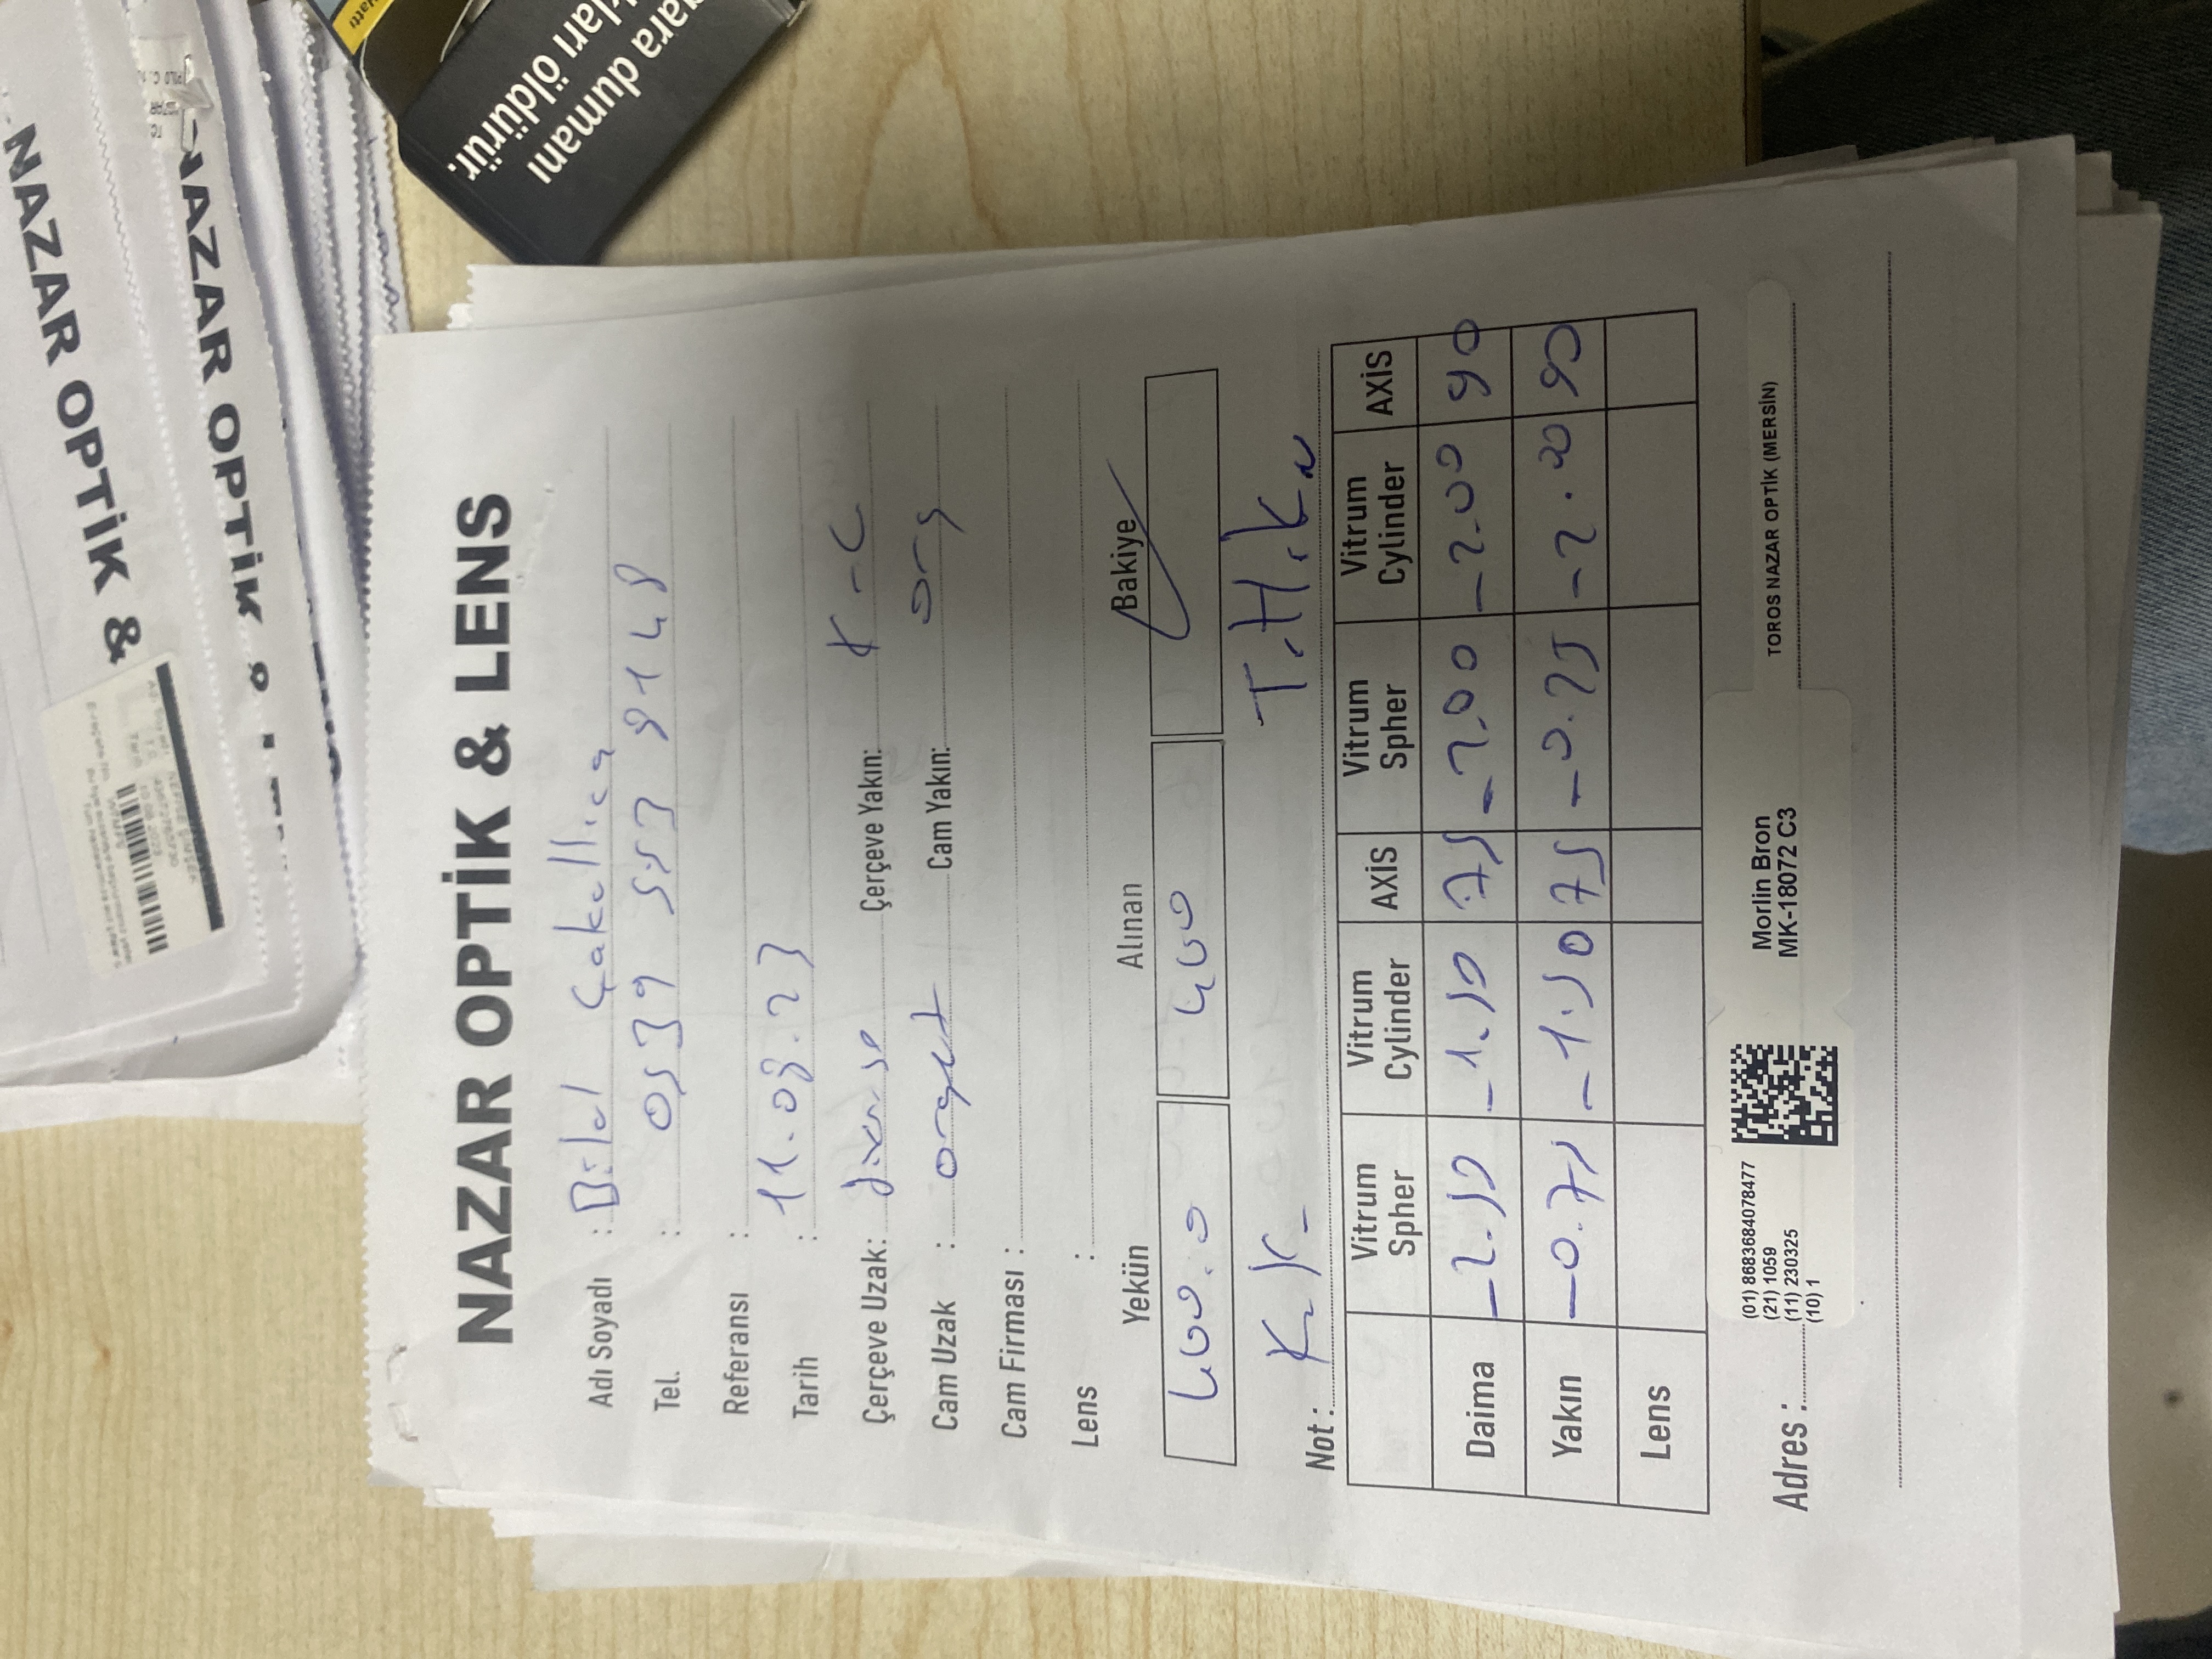 NAZAR OPTİK &
NAZAR OPTİK &
NAZAR OPTİK & LENS
Adı Soyadı : Bilal Çakallıca
Tel. : 0539 553 8148
Referansı :
Tarih : 11.08.23
Çerçeve Uzak: Çerçeve Yakın: K-C
Cam Uzak : Cam Yakın: org
Cam Firması :
Lens :
Yekün Alınan Bakiye
400.0 400
K.K- T.H.K.
Not :
Vitrum Spher Vitrum Cylinder AXİS Vitrum Spher Vitrum Cylinder AXİS
Daima -2.50 -1.50 75 -2.00 -2.00 90
Yakın -0.75 -1.50 75 -0.25 -2.00 90
Lens
(01) 8683684078477
(21) 1059
(11) 230325
(10) 1
Morlin Bron
MK-18072 C3
TOROS NAZAR OPTİK (MERSİN)
Adres :
dumanı
öldürür.